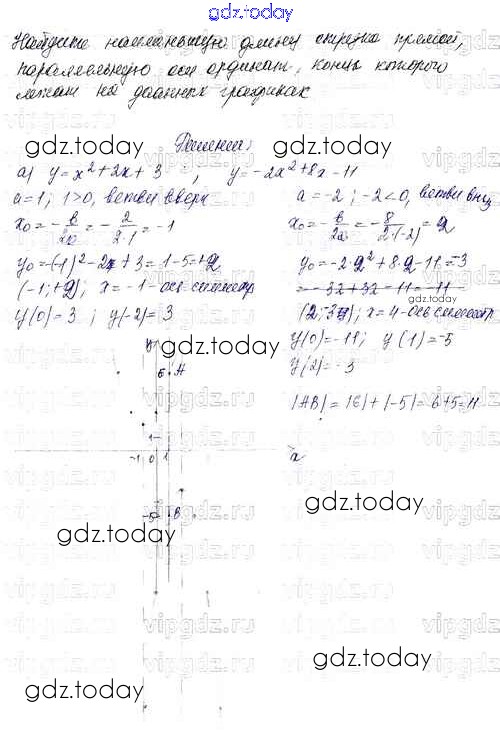 gdz.today
Найдите наименьшую длину отрезка прямой,
параллельную оси ординат, концы которого
лежат на данных графиках
gdz.today Решение: gdz.today
а) y = x² + 2x + 3 ; y = -2x² + 8x - 11
a = 1; 1 > 0, ветви вверх a = -2; -2 < 0, ветви вниз
x₀ = -b/2a = -2/2·1 = -1 x₀ = -b/2a = -8/2·(-2) = 2
y₀ = (-1)² - 2 + 3 = 1 - 5 = +2 y₀ = -2·2² + 8·2 - 11 = -3
(-1; +2); x = -1 - ось симметр = -32 + 32 - 11 = -11
y(0) = 3 ; y(-2) = 3 (2; -3); x = 4 - ось симметр
gdz.today y(0) = -11; y(1) = -5
y(2) = -3
|AB| = |6| + |-5| = 6 + 5 = 11
y
6 A
1
-1 0 1 x
-5 B
gdz.today gdz.today
gdz.today
gdz.today
vipgdz.ru